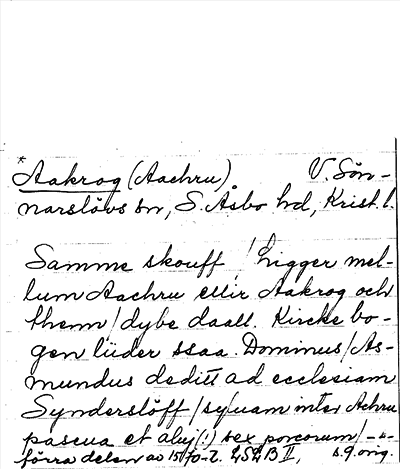 *Aakrog (Aachru) V. Sön-
narslövs sn, S. Åsbo hd, Krist. l.
Samme skouff / ligger mel-
lum Aachru ellir Aakrog och
themn / dybe daall. Kircke bo-
gen lüder ssaa. Dominus / As-
mundus deditt ad ecclesiam
Synderslöff / syluam inter Achru
pascua et aluj (!) sex porcorum / -"-
förra delen av 1570-t. LSLB II, s. 9. orig.